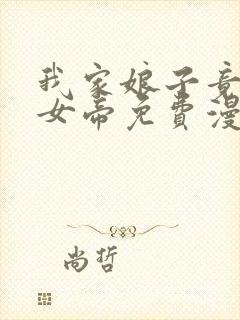 我家娘子竟
女帝免費漫
尚哲